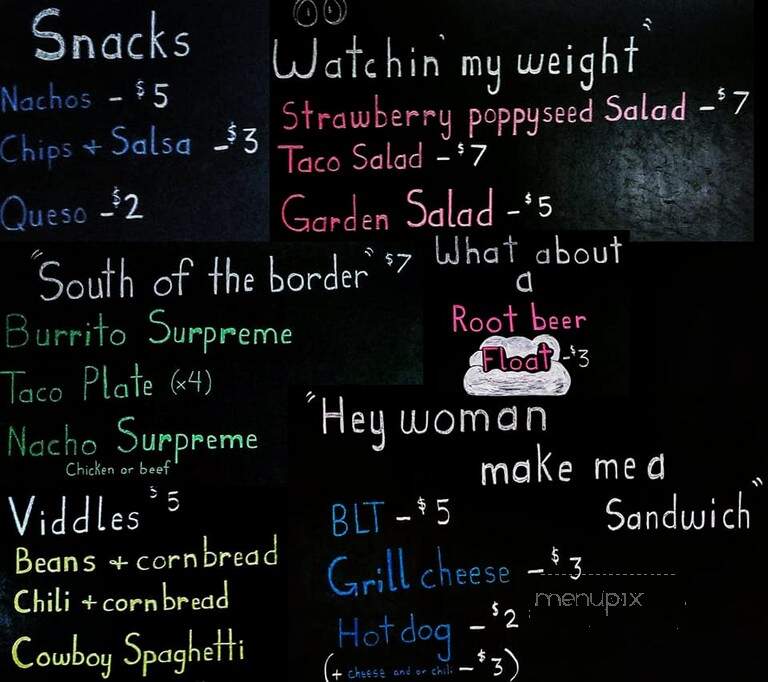 Snacks
Nachos - $5
Chips + Salsa - $3
Queso - $2
"Watchin' my weight"
Strawberry poppyseed Salad - $7
Taco Salad - $7
Garden Salad - $5
"South of the border" $7
Burrito Surpreme
Taco Plate (x4)
Nacho Surpreme
Chicken or beef
What about
a
Root beer
Float - $3
Viddles $5
Beans + cornbread
Chili + cornbread
Cowboy Spaghetti
"Hey woman
make me a
Sandwich"
BLT - $5
Grill cheese - $3
Hotdog - $2
(+ cheese and or chili - $3)
menupix